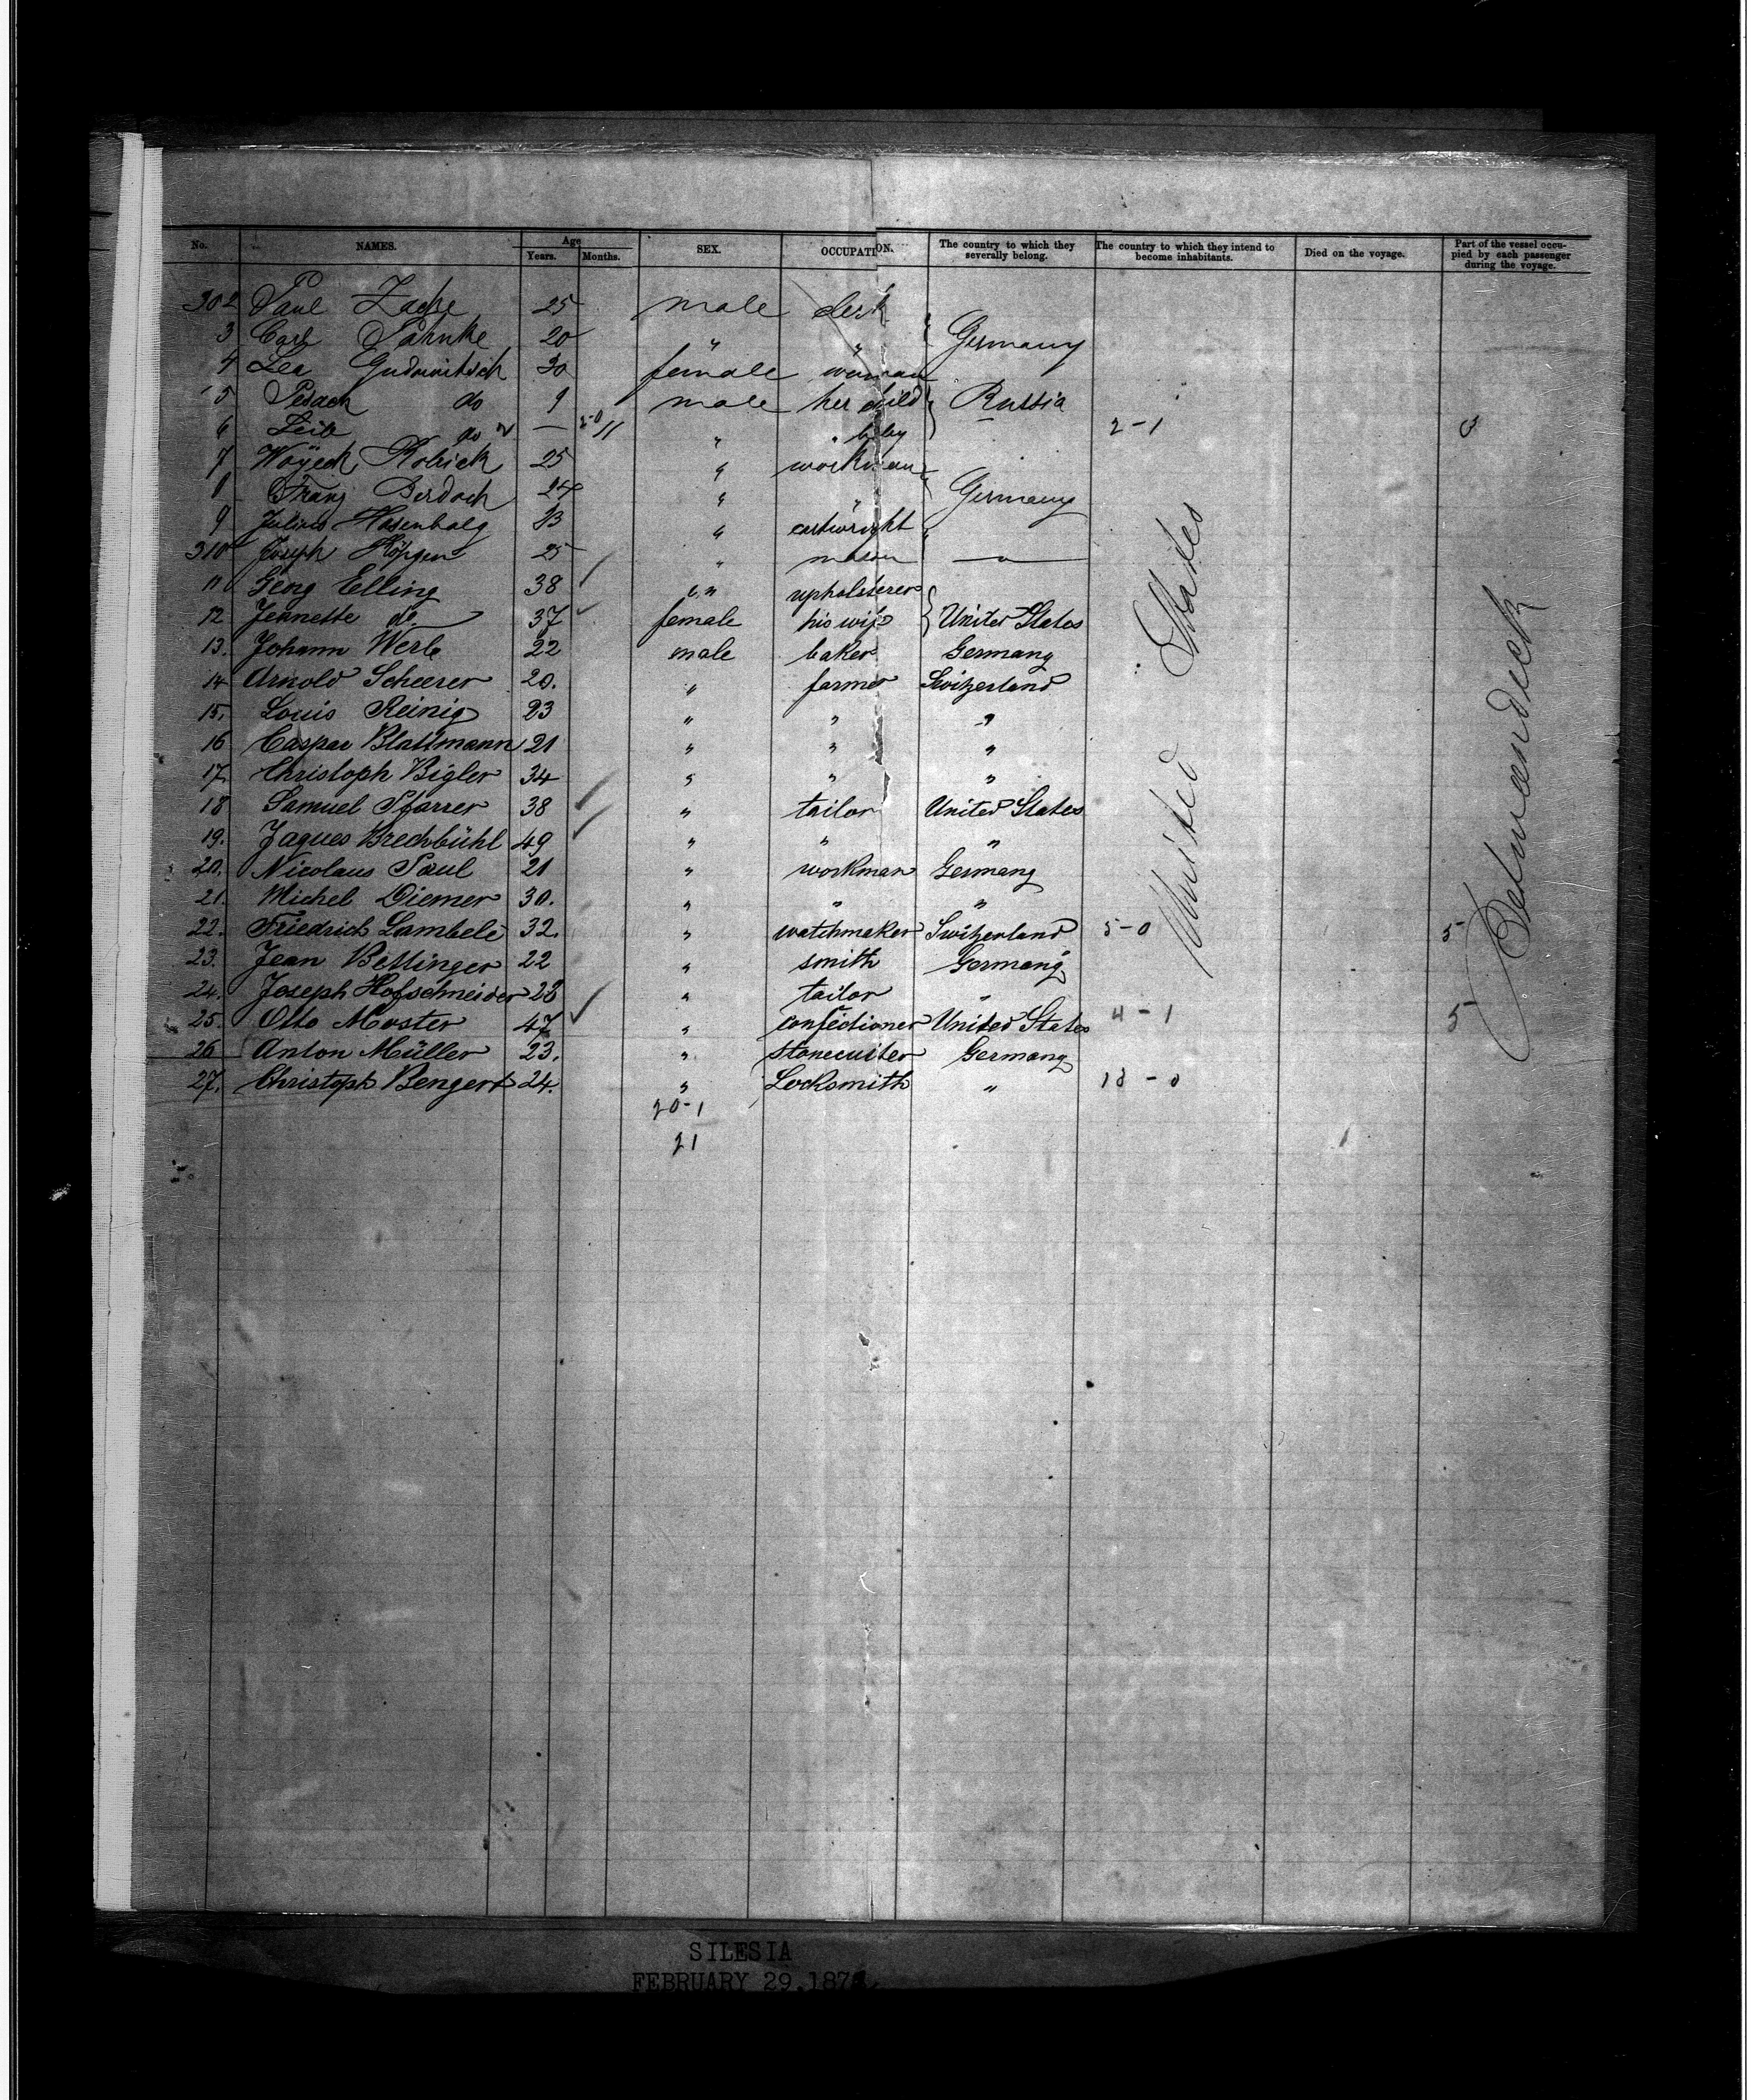 No. NAMES. Age Years. Months. SEX. OCCUPATION. The country to which they severally belong. The country to which they intend to become inhabitants. Died on the voyage. Part of the vessel occupied by each passenger during the voyage.
302 Paul Zache 25 male clerk
3 Carl Jahnke 20 " " Germany
4 Lea Gudowitsch 30 female woman
5 Pesach do 9 male her child Russia
6 Leib do — 11 " " baby 2-1
7 Woyeck Kobiek 25 " workman
8 Franz Berdach 24 " " Germany
9 Julius Hasenbalg " cartwright "
310 Joseph Höpgen 25 " mason — " —
11 Georg Elling 38 " upholsterer
12 Jeannette do 37 female his wife United States
13. Johann Werle 22 male baker Germany
14 Arnold Scheerer 20. " farmer Switzerland
15. Louis Reinig 23 " " "
16 Caspar Blattmann 21 " " "
17. Christoph Bigler 34 " " "
18 Samuel Pfarrer 38 " tailor United States
19. Jaques Brechbühl 49 " " "
20. Nicolaus Paul 21 " workman Germany
21. Michel Diemer 30. " " "
22. Friedrich Lambele 32. " watchmaker Switzerland 5-0 5
23. Jean Bettinger 22 " smith Germany
24. Joseph Hofschneider 28 " tailor "
25. Otto Moster 47 " confectioner United States 4-1 5
26 Anton Müller 23. " stonecutter Germany
27. Christoph Bengert 24. " Locksmith " 18-0
20-1
21
United States
Betweendeck
SILESIA
FEBRUARY 29, 187